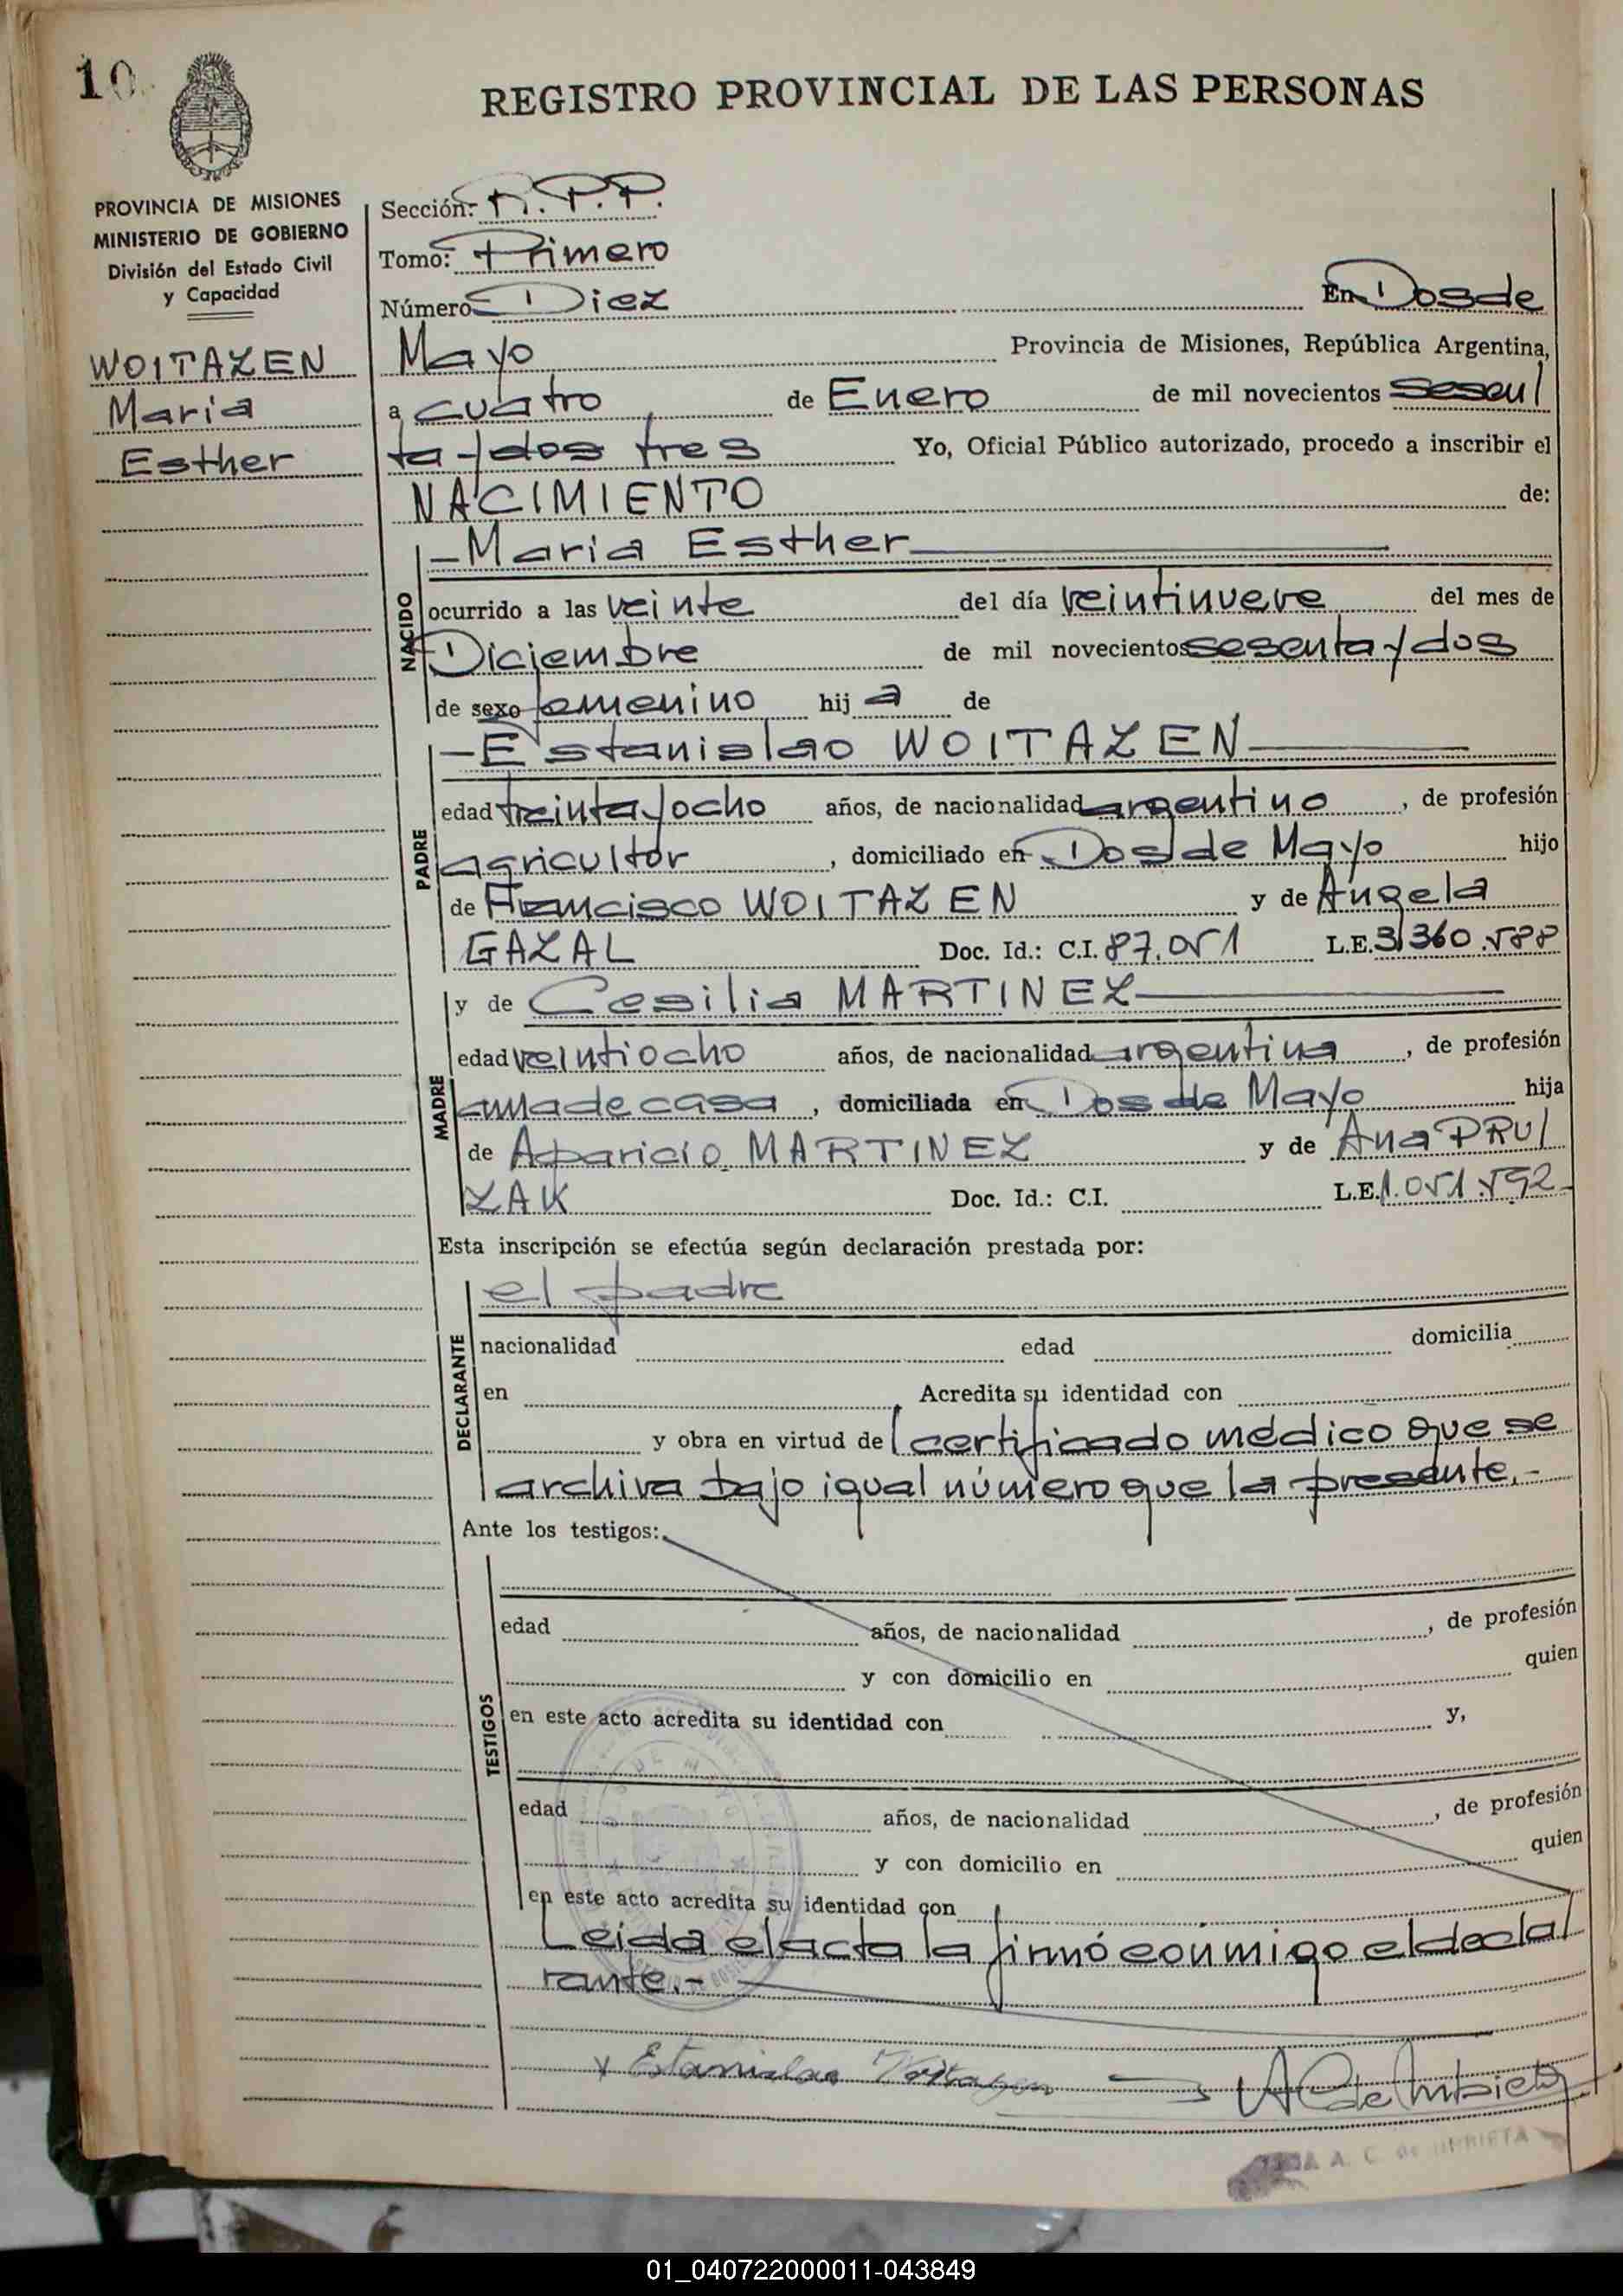 10
REGISTRO PROVINCIAL DE LAS PERSONAS
PROVINCIA DE MISIONES
MINISTERIO DE GOBIERNO
División del Estado Civil
y Capacidad
WOITAZEN
Maria
Esther
Sección: R.P.P.
Tomo: Primero
Número Diez En Dos de
Mayo Provincia de Misiones, República Argentina,
a cuatro de Enero de mil novecientos sesen/
ta y dos tres Yo, Oficial Público autorizado, procedo a inscribir el
NACIMIENTO de:
NACIDO
-Maria Esther
ocurrido a las veinte del día veintinueve del mes de
Diciembre de mil novecientos sesenta y dos
de sexo femenino hij a de
PADRE
-Estanislao WOITAZEN
edad treinta y ocho años, de nacionalidad argentino, de profesión
agricultor, domiciliado en Dos de Mayo hijo
de Francisco WOITAZEN y de Angela
GAZAL Doc. Id.: C.I. 87.051 L.E. 3.360.588
MADRE
y de Cesilia MARTINEZ
edad veintiocho años, de nacionalidad argentina, de profesión
ama de casa, domiciliada en Dos de Mayo hija
de Aparicio MARTINEZ y de Ana PRU/
ZAK Doc. Id.: C.I. L.E. 1.051.592-
Esta inscripción se efectúa según declaración prestada por:
DECLARANTE
el padre
nacionalidad edad domicilia
en Acredita su identidad con
y obra en virtud del certificado médico que se
archiva bajo igual número que la presente.-
Ante los testigos:
TESTIGOS
edad años, de nacionalidad , de profesión
y con domicilio en quien
en este acto acredita su identidad con y,
edad años, de nacionalidad , de profesión
y con domicilio en quien
en este acto acredita su identidad con
Leida el acta la firmó conmigo el decla/
rante.-
Estanislao Woitazen
A. C. de URRIETA
01_040722000011-043849